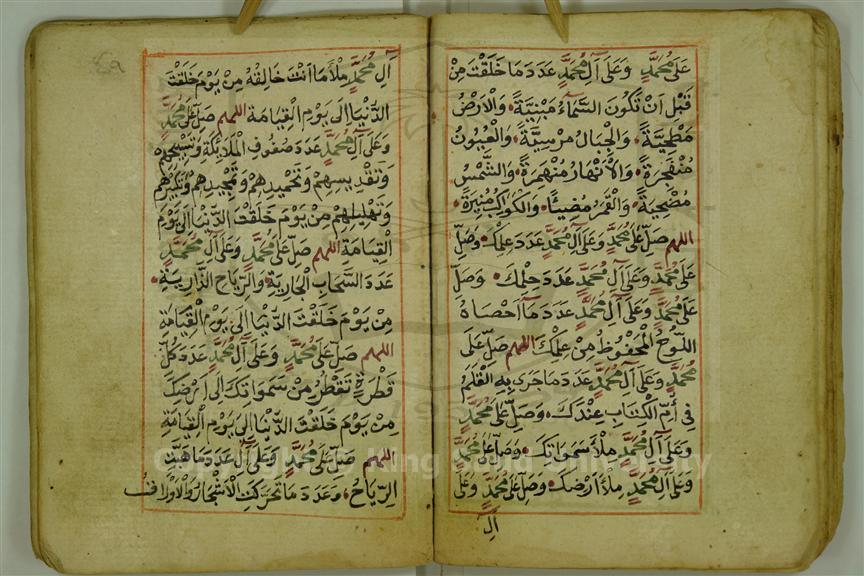 عَلٰى مُحَمَّدٍ وَعَلٰى آلِ مُحَمَّدٍ عَدَدَ مَا خَلَقْتَ مِنْ
قَبْلِ اَنْ تَكُونَ السَّمَاءُ مَبْنِيَّةً وَالْاَرْضُ
مَطْحِيَّةً وَالْجِبَالُ مُرْسِيَّةً وَالْعُيُونُ
مُنْفَجِرَةً وَالْاَنْهَارُ مُنْهَمِرَةً وَالشَّمْسُ
مُضْحِيَةً وَالْقَمَرُ مُضِيئًا وَالْكَوَاكِبُ مُنِيرَةً
اللهم صَلِّ عَلٰى مُحَمَّدٍ وَعَلٰى آلِ مُحَمَّدٍ عَدَدَ عِلْمِكَ وَصَلِّ
عَلٰى مُحَمَّدٍ وَعَلٰى آلِ مُحَمَّدٍ عَدَدَ حِلْمِكَ وَصَلِّ
عَلٰى مُحَمَّدٍ وَعَلٰى آلِ مُحَمَّدٍ عَدَدَ مَا اَحْصَاهُ
اللَّوْحُ الْمَحْفُوظُ مِنْ عِلْمِكَ اللهم صَلِّ عَلٰى
مُحَمَّدٍ وَعَلٰى آلِ مُحَمَّدٍ عَدَدَ مَا جَرٰى بِهِ الْقَلَمُ
فِى اُمِّ الْكِتَابِ عِنْدَكَ وَصَلِّ عَلٰى مُحَمَّدٍ
وَعَلٰى آلِ مُحَمَّدٍ مِلْأَ سَمٰوَاتِكَ وَصَلِّ عَلٰى مُحَمَّدٍ
وَعَلٰى آلِ مُحَمَّدٍ مِلْأَ اَرْضِكَ وَصَلِّ عَلٰى مُحَمَّدٍ وَعَلٰى
آلِ
آلِ مُحَمَّدٍ مِلْأَ مَا اَنْتَ خَالِقُهُ مِنْ يَوْمِ خَلَقْتَ
الدُّنْيَا اِلٰى يَوْمِ الْقِيَامَةِ اللهم صَلِّ عَلٰى مُحَمَّدٍ
وَعَلٰى آلِ مُحَمَّدٍ عَدَدَ صُفُوفِ الْمَلَائِكَةِ وَتَسْبِيحِهِمْ
وَتَقْدِيسِهِمْ وَتَحْمِيدِهِمْ وَتَمْجِيدِهِمْ وَتَكْبِيرِهِمْ
وَتَهْلِيلِهِمْ مِنْ يَوْمَ خَلَقْتَ الدُّنْيَا اِلٰى يَوْمِ
الْقِيَامَةِ اللهم صَلِّ عَلٰى مُحَمَّدٍ وَعَلٰى آلِ مُحَمَّدٍ
عَدَدَ السَّحَابِ الْجَارِيَةِ وَالرِّيَاحِ الذَّارِيَةِ
مِنْ يَوْمَ خَلَقْتَ الدُّنْيَا اِلٰى يَوْمِ الْقِيَامَةِ
اللهم صَلِّ عَلٰى مُحَمَّدٍ وَعَلٰى آلِ مُحَمَّدٍ عَدَدَ كُلِّ
قَطْرَةٍ تَقْطُرُ مِنْ سَمٰوَاتِكَ اِلٰى اَرْضِكَ
مِنْ يَوْمَ خَلَقْتَ الدُّنْيَا اِلٰى يَوْمِ الْقِيَامَةِ
اللهم صَلِّ عَلٰى مُحَمَّدٍ وَعَلٰى آلِ عَدَدَ مَا هَبَّتِ
الرِّيَاحُ وَعَدَدَ مَا تَحَرَّكَتِ الْاَشْجَارُ وَالْاَوْرَاقُ